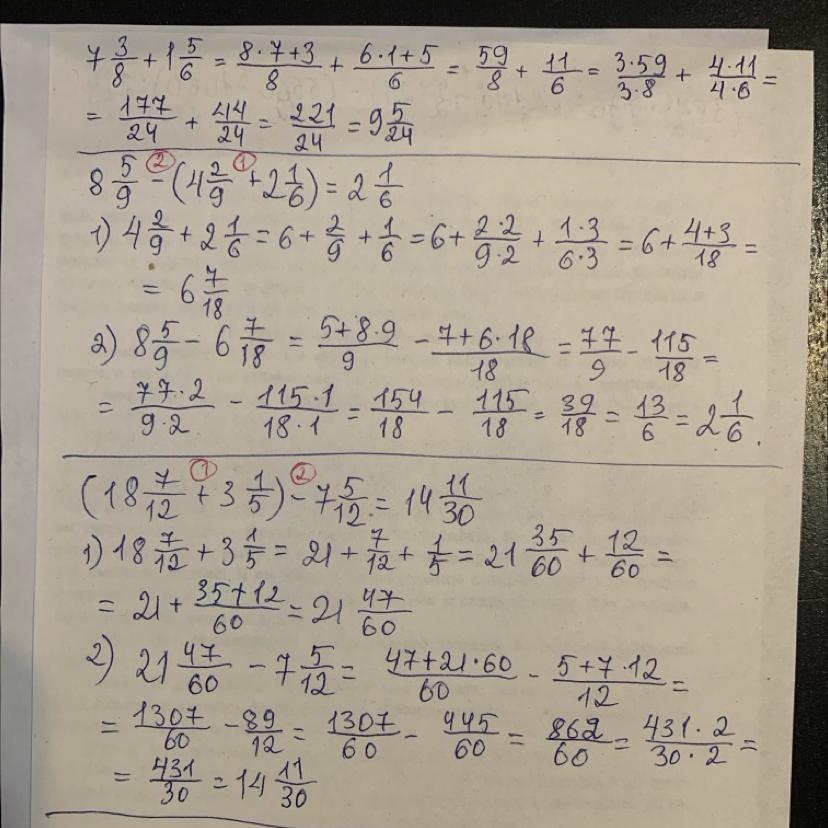 7 3/8 + 1 5/6 = (8·7+3)/8 + (6·1+5)/6 = 59/8 + 11/6 = (3·59)/(3·8) + (4·11)/(4·6) =
= 177/24 + 44/24 = 221/24 = 9 5/24
8 5/9 -② (4 2/9 +① 2 1/6) = 2 1/6
1) 4 2/9 + 2 1/6 = 6 + 2/9 + 1/6 = 6 + (2·2)/(9·2) + (1·3)/(6·3) = 6 + (4+3)/18 =
= 6 7/18
2) 8 5/9 - 6 7/18 = (5+8·9)/9 - (7+6·18)/18 = 77/9 - 115/18 =
= (77·2)/(9·2) - (115·1)/(18·1) = 154/18 - 115/18 = 39/18 = 13/6 = 2 1/6.
(18 7/12 +① 3 1/5) -② 7 5/12 = 14 11/30
1) 18 7/12 + 3 1/5 = 21 + 7/12 + 1/5 = 21 35/60 + 12/60 =
= 21 + (35+12)/60 = 21 47/60
2) 21 47/60 - 7 5/12 = (47+21·60)/60 - (5+7·12)/12 =
= 1307/60 - 89/12 = 1307/60 - 445/60 = 862/60 = (431·2)/(30·2) =
= 431/30 = 14 11/30